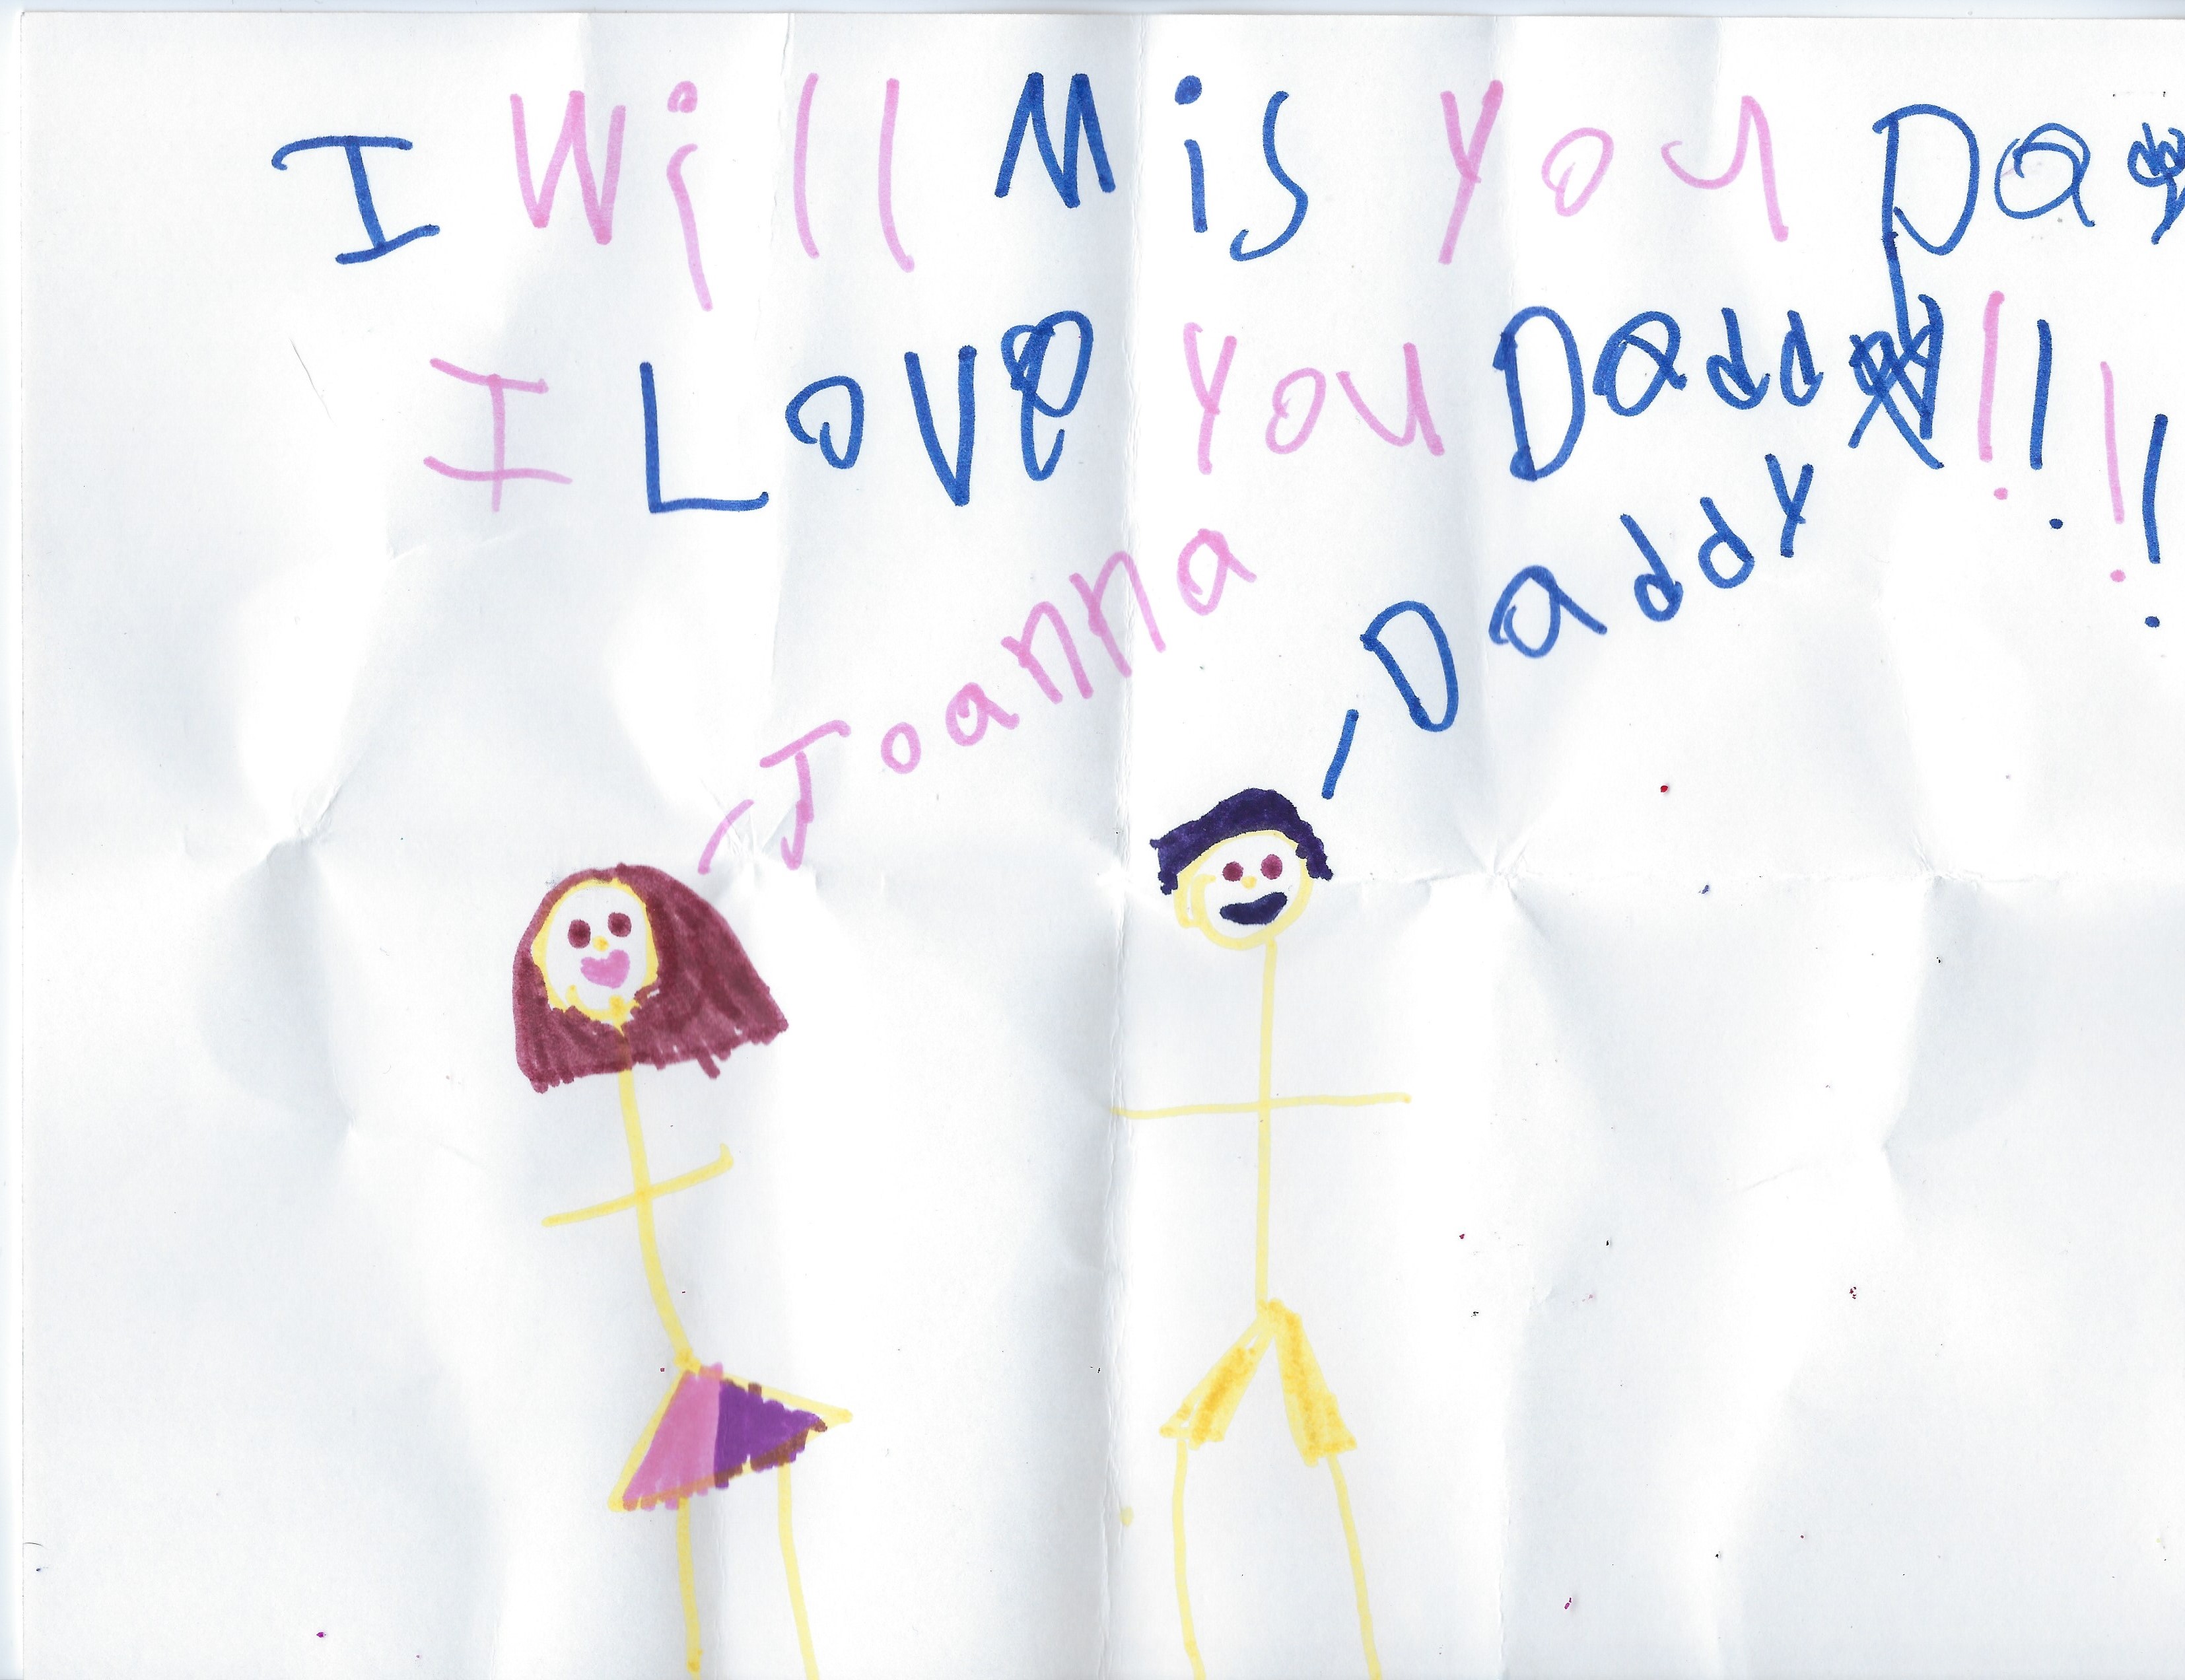 I Will Mis you Daddy
I Love you Daddy!!!!
Joanna
Daddy